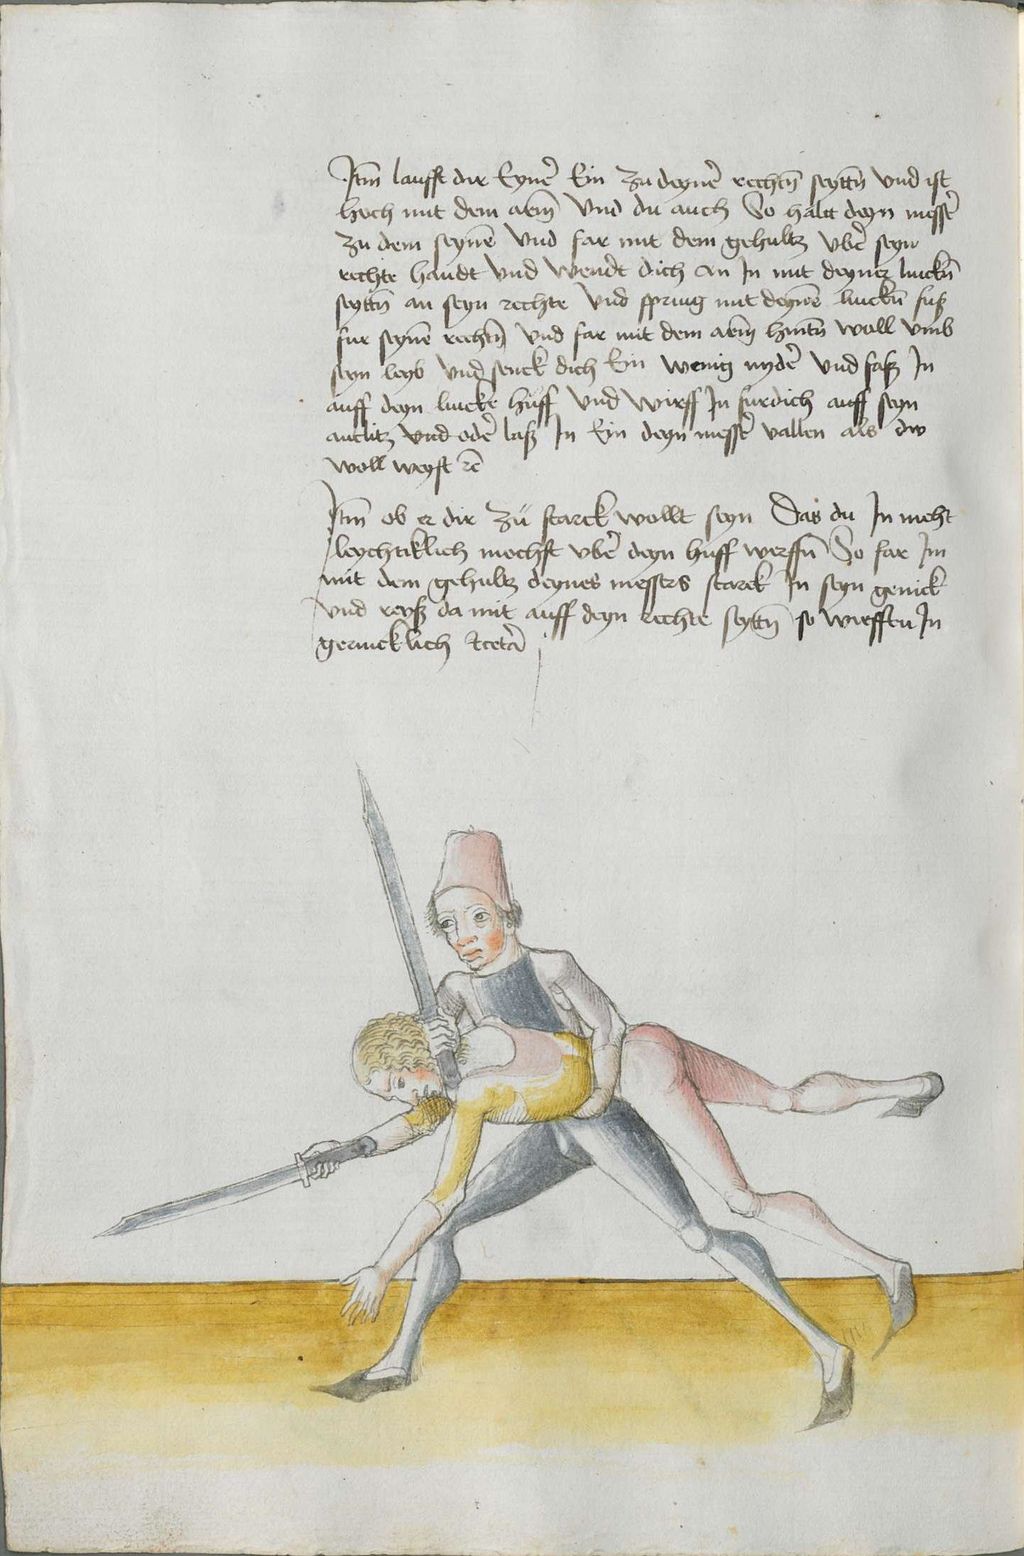 Itm laufft dir Eynē Ein zu deynē rechtn̄ seyttn̄ Vnd ist
hoch mit dem arm̄ Vnd du auch So haltt deyn messē
zu dem seynē Vnd far mit dem gehultz vbē seyn
rechte handt Vnd wendt dich an In mit deyner linckn̄
seyttn̄ an seyn rechte Vnd spring mit deynē linckn̄ fuß
fur seynē rechtn̄ Vnd far mit dem arm̄ hintn̄ woll vmb
seyn leyb Vnd senck dich Ein wenig nydē Vnd faß In
auff deyn lincke huff Vnd wirff In furdich auff seyn
antlitz Vnd odē laß In Ein deyn messē vallen als dw
woll weyst
Itm ob er dir zü starck wollt seyn Das du In nicht
leychtiklich mochst vbē deyn huff werffn̄ So far Im
mit dem gehultz deynes messers starck In seyn genick
vnd reyß da mit auff deyn rechte seyttn̄ so wirffstu In
gerincklich Etceta᷑